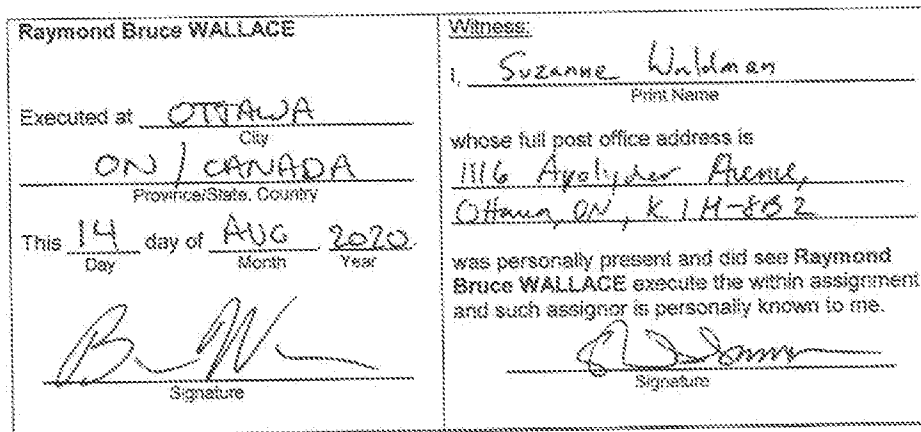 Raymond Bruce WALLACE
Executed at OTTAWA
City
ON / CANADA
Province/State, Country
This 14 day of AUG 2020
Day Month Year
Signature
Witness:
I, Suzanne Waldman
Print Name
whose full post office address is
1116 Avenue,
Ottawa, ON, K1H-8B2
was personally present and did see Raymond
Bruce WALLACE execute the within assignment
and such assignor is personally known to me.
Signature